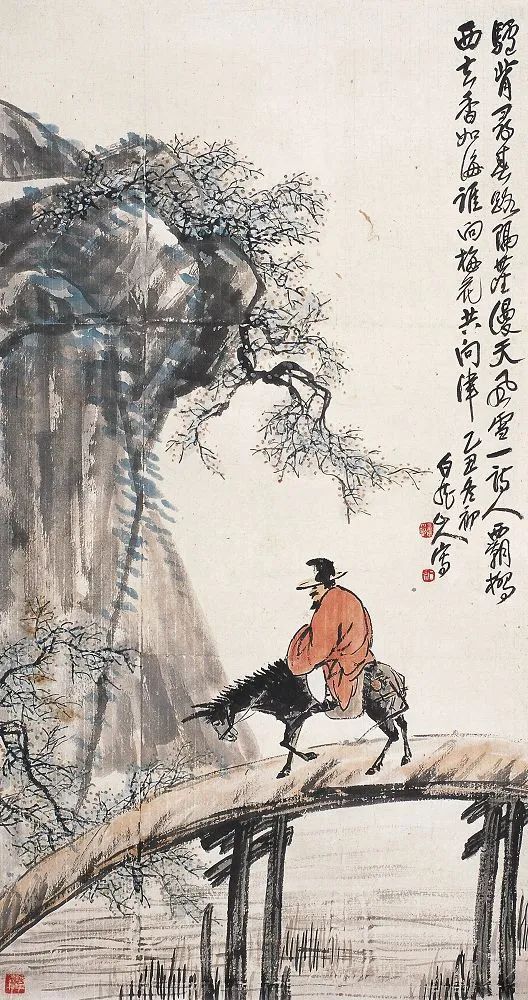 驢背尋春路隔塵漫天風雪一詩人霸橋
西去香如海誰向梅花共問津 乙丑冬初
白龍山人寫